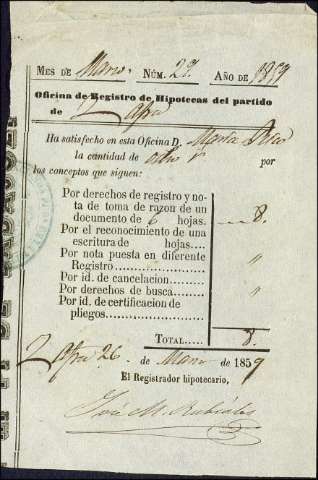 MES DE Marzo. NÚM. 27. AÑO DE 1859
Oficina de Registro de Hipotecas del partido
de Zafra
Ha satisfecho en esta Oficina D. Maria
la cantidad de ocho r por
los conceptos que siguen:
Por derechos de registro y no-
ta de toma de razon de un
documento de 6 hojas. 8.
Por el reconocimiento de una
escritura de hojas....
Por nota puesta en diferente
Registro.......... "
Por id. de cancelacion...
Por derechos de busca.... "
Por id. de certificacion de
pliegos............
TOTAL..... 8.
Zafra 26 de Marzo de 1859
El Registrador hipotecario,
José M. Rubiales